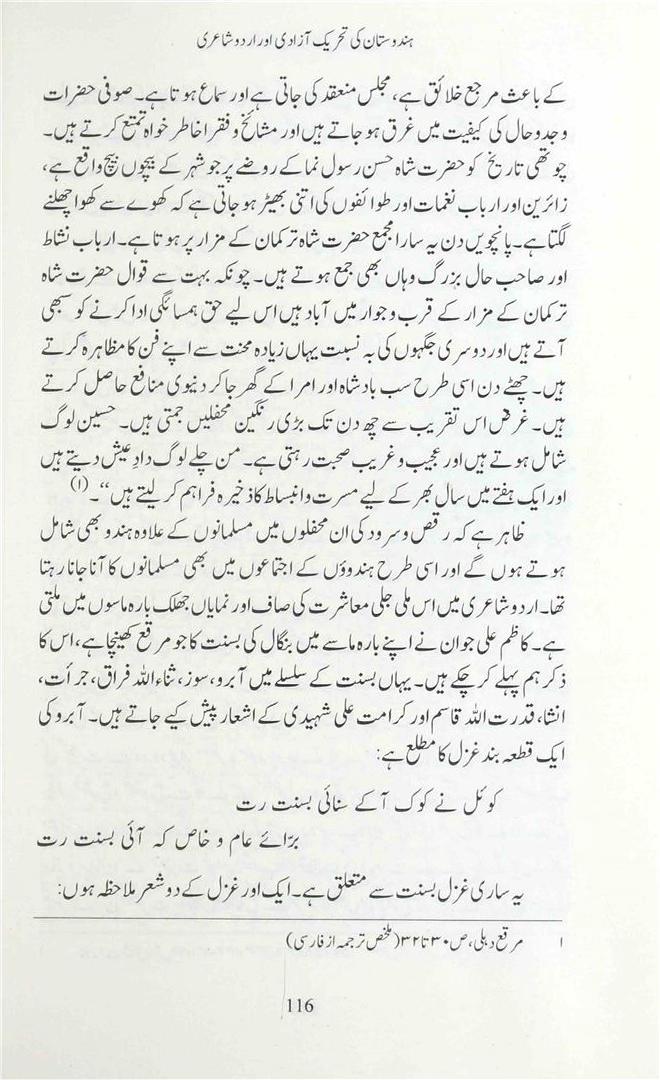 ہندوستان کی تحریک آزادی اور اردو شاعری
کے باعث مرجع خلائق ہے، مجلس منعقد کی جاتی ہے اور سماع ہوتا ہے۔ صوفی حضرات
وجد و حال کی کیفیت میں غرق ہو جاتے ہیں اور مشائخ و فقرا خاطر خواہ تمتع کرتے ہیں۔
چوتھی تاریخ کو حضرت شاہ حسن رسول نما کے روضے پر جو شہر کے بیچوں بیچ واقع ہے،
زائرین اور ارباب نغمات اور طوائفوں کی اتنی بھیڑ ہو جاتی ہے کہ کھوے سے کھوا چھلنے
لگتا ہے۔ پانچویں دن یہ سارا مجمع حضرت شاہ ترکمان کے مزار پر ہوتا ہے۔ ارباب نشاط
اور صاحب حال بزرگ وہاں بھی جمع ہوتے ہیں۔ چونکہ بہت سے قوال حضرت شاہ
ترکمان کے مزار کے قرب و جوار میں آباد ہیں اس لیے حق ہمسائگی ادا کرنے کو سبھی
آتے ہیں اور دوسری جگہوں کی بہ نسبت یہاں زیادہ محنت سے اپنے فن کا مظاہرہ کرتے
ہیں۔ چھٹے دن اسی طرح سب بادشاہ اور امرا کے گھر جا کر دنیوی منافع حاصل کرتے
ہیں۔ غرض اس تقریب سے چھ دن تک بڑی رنگین محفلیں جمتی ہیں۔ حسین لوگ
شامل ہوتے ہیں اور عجیب و غریب صحبت رہتی ہے۔ من چلے لوگ دادِ عیش دیتے ہیں
اور ایک ہفتے میں سال بھر کے لیے مسرت و انبساط کا ذخیرہ فراہم کر لیتے ہیں“۔(۱)
ظاہر ہے کہ رقص و سرود کی ان محفلوں میں مسلمانوں کے علاوہ ہندو بھی شامل
ہوتے ہوں گے اور اسی طرح ہندوؤں کے اجتماعوں میں بھی مسلمانوں کا آنا جانا رہتا
تھا۔ اردو شاعری میں اس ملی جلی معاشرت کی صاف اور نمایاں جھلک بارہ ماسوں میں ملتی
ہے۔ کاظم علی جوان نے اپنے بارہ ماسے میں بنگال کی بسنت کا جو مرقع کھینچا ہے، اس کا
ذکر ہم پہلے کر چکے ہیں۔ یہاں بسنت کے سلسلے میں آبرو، سوز، ثناء اللہ فراق، جرأت،
انشا، قدرت اللہ قاسم اور کرامت علی شہیدی کے اشعار پیش کیے جاتے ہیں۔ آبرو کی
ایک قطعہ بند غزل کا مطلع ہے:
کوئل نے کوک آ کے سنائی بسنت رت
برائے عام و خاص کہ آئی بسنت رت
یہ ساری غزل بسنت سے متعلق ہے۔ ایک اور غزل کے دو شعر ملاحظہ ہوں:
۱ مرقع دہلی، ص ۳۰ تا ۳۲ (ملخص ترجمہ از فارسی)
116